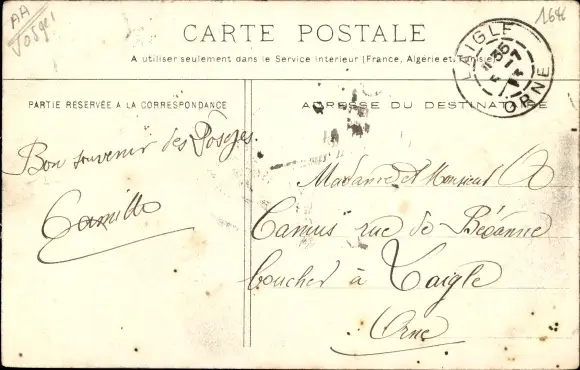 AA
Vosges
16K
CARTE POSTALE
A utiliser seulement dans le Service intérieur (France, Algérie et Tunisie)
LAIGLE
ORNE
PARTIE RÉSERVÉE A LA CORRESPONDANCE
ADRESSE DU DESTINATAIRE
Bon souvenir des Vosges.
Camille
Madame et Monsieur A
Camus rue de Bécanne
boucher à Laigle
Orne